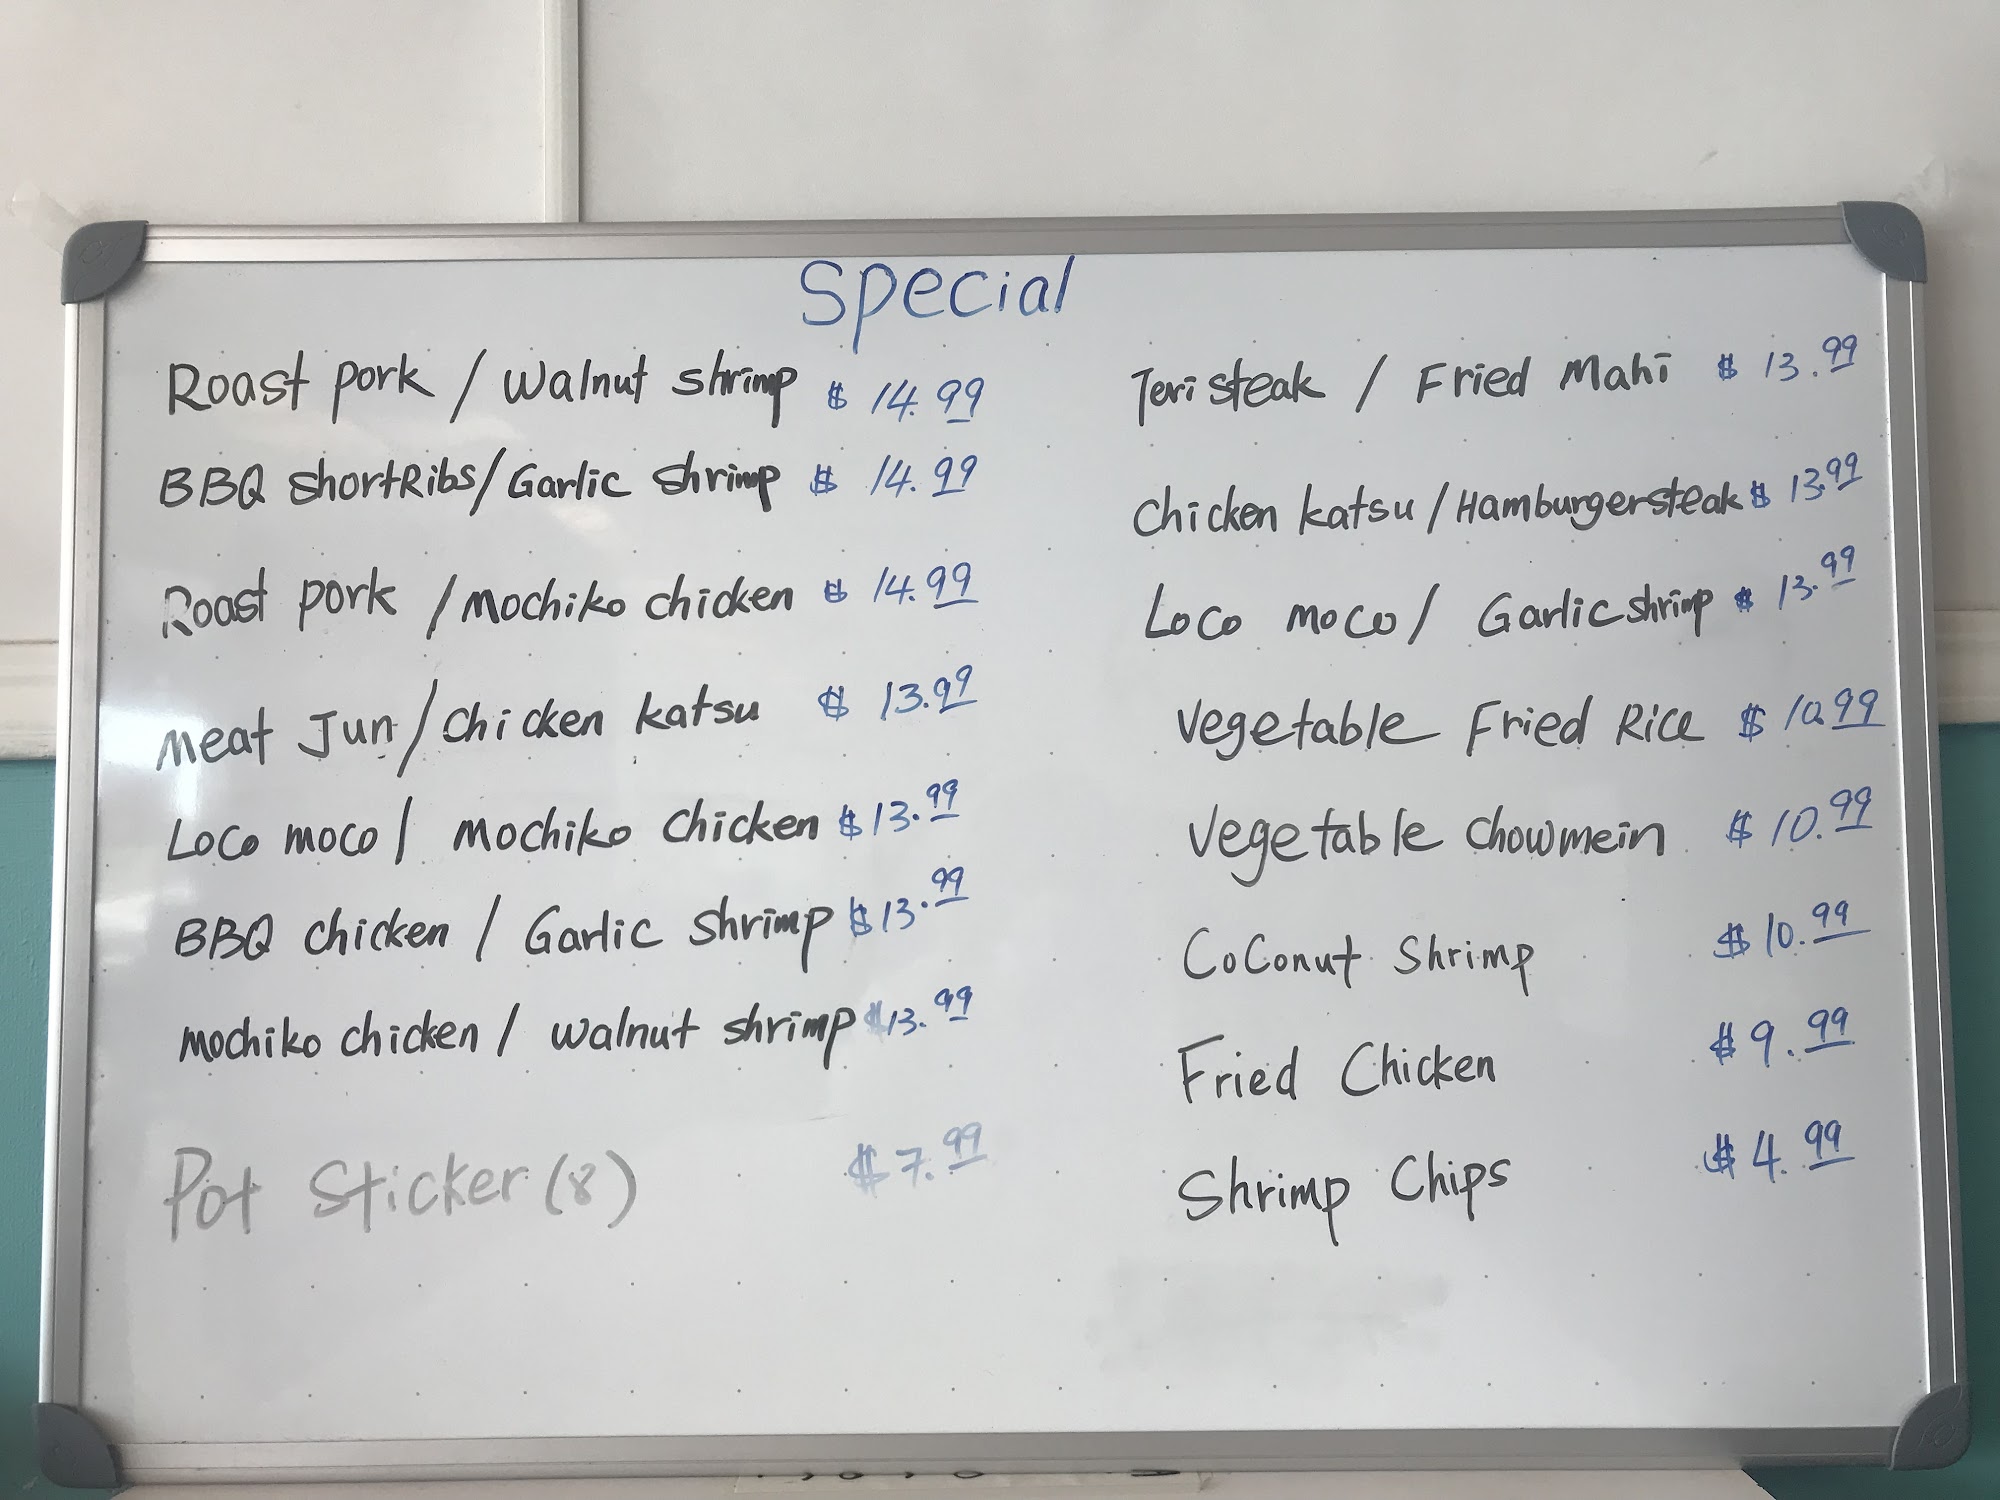 Special
Roast pork / Walnut shrimp $ 14.99
BBQ shortRibs/Garlic shrimp $ 14.99
Roast pork / Mochiko chicken $ 14.99
Meat Jun/chicken katsu $ 13.99
Loco moco / mochiko chicken $13.99
BBQ chicken / Garlic shrimp $13.99
mochiko chicken / walnut shrimp $13.99
Pot Sticker (8) $7.99
Teri steak / Fried Mahi $ 13.99
Chicken katsu / Hamburgersteak $ 13.99
Loco moco / Garlic shrimp $ 13.99
Vegetable Fried Rice $ 10.99
Vegetable Chowmein $ 10.99
Coconut Shrimp $10.99
Fried Chicken $9.99
Shrimp Chips $4.99